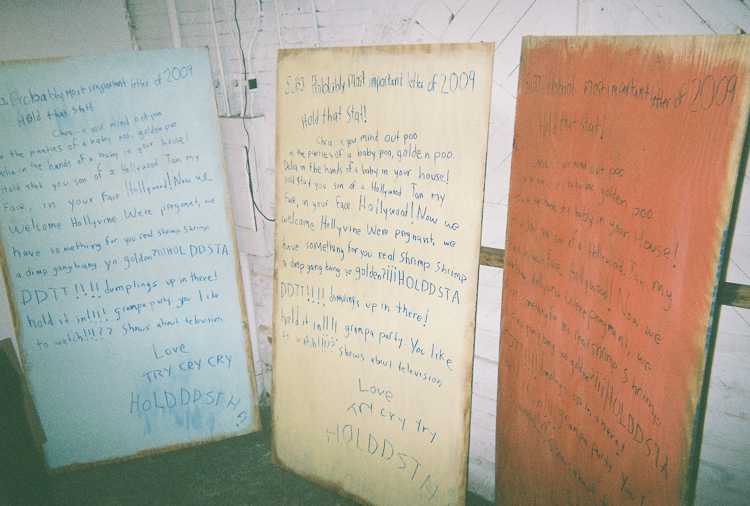 Probably Most important letter of 2009
Hold that Stat!
Chris x your mind out poo
the panties of a baby poo, golden poo.
Delia in the hands of a baby in your house!
Hold stat you son of a Hollywood Tan my
Face, in your Face Hollywood! Now we
Welcome Hollyvine Were pregnant, we
have something for you real shrimp shrimps
a dimp gang bang yo golden?¡¡¡HOLDDSTA
DDTT!!!! dumplings up in there!
hold it in!!!! grampa party you like
to watch!!!?? Shows about television
Love
TRY CRY CRY
HOLDDDSTH
SUBJ Probably Most important letter of 2009
Hold that Stat!
Chris x your mind out poo
in the panties of a baby poo, golden poo.
Delia in the hands of a baby in your house!
Hold stat you son of a Hollywood Tan my
face, in your Face Hollywood! Now we
welcome Hollyvine Were pregnant, we
have something for you. real shrimp shrimps
a dimp gang bang yo golden?¡¡¡HOLDDSTA
DDTT!!!! dumplings up in there!
hold it in!!!! grampa party. You like
to watch!!!?? Shows about television
Love
TRY Cry Try
HOLDDSTA
Most important letter of 2009
Hold that Stat!
your mind out poo
of a baby poo, golden poo.
in the hands of a baby in your House!
stat you son of a Hollywood. Tan my
in your face, Hollywood! Now we
Hollyvine Were pregnant, we
something for you real shrimp shrimp
gang bang yo golden?¡¡¡HOLDDDSTA
!!!! dumplings up in there!
it in!!!! grampa party. You
about